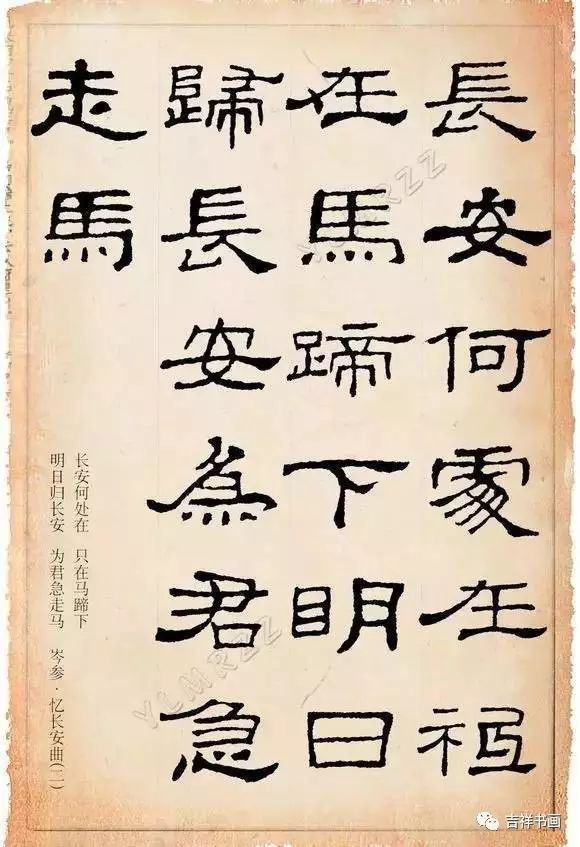 長安何處在祗
在馬蹄下明日
歸長安為君急
走馬
长安何处在 只在马蹄下
明日归长安 为君急走马 岑参·忆长安曲(二)
YLMRZZ
YLMRZZ
吉祥书画